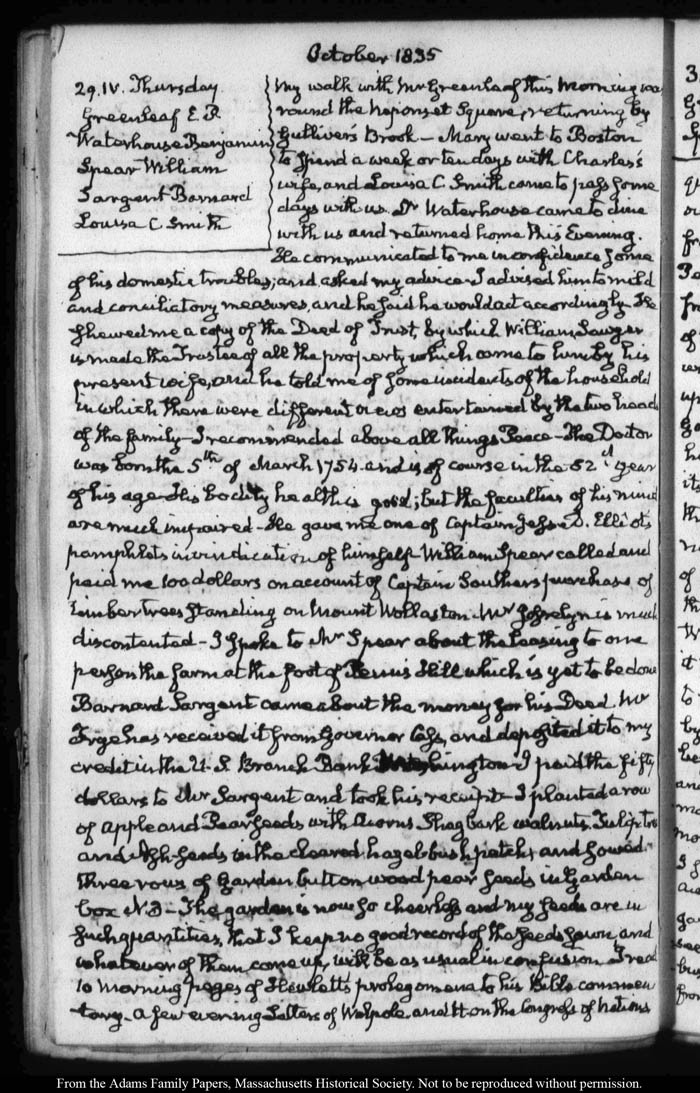 October 1835
29. IV. Thursday
Greenleaf E. P.
Waterhouse Benjamin
Spear William
Sargent Barnard
Louisa C Smith
My walk with Mr Greenleaf this morning was
round the Neponset Square, returning by
Gulliver's Brook — Mary went to Boston
to spend a week or ten days with Charles's
wife, and Louisa C. Smith came to pass some
days with us. Dr Waterhouse came to dine
with us and returned home this Evening.
He communicated to me in confidence some
of his domestic troubles; and asked my advice. I advised him to mild
and conciliatory measures, and he said he would act accordingly. He
shewed me a copy of the Deed of Trust, by which William Sawyer
is made the Trustee of all the property which came to him by his
present wife, and he told me of some incidents of the household
in which there were different views entertained by the two heads
of the family — I recommended above all things Peace — The Doctor
was born the 5th of March 1754 and is of course in the 82d year
of his age. His bodily health is good; but the faculties of his mind
are much impaired — He gave me one of Captain Jesse D. Elliot's
pamphlets in vindication of himself. William Spear called and
paid me 100 dollars on account of Captain Souther's purchase of
timber trees standing on Mount Wollaston. Mr is much
discontented — I spoke to Mr Spear about the leasing to one
person the farm at the foot of Penn's Hill which is yet to be done
Barnard Sargent came about the money for his Deed. Mr
Frye has received it from Governor Cass, and deposited it to my
credit in the U.S. Branch Bank Washington — I paid the fifty
dollars to Mr Sargent and took his receipt — I planted a row
of apple and Pear seeds with acorns Shagbark walnuts, Tulip tree
and Ash seeds in the cleared hazel bush patch; and sowed
three rows of Garden button wood pear seeds in Garden
box N. 3 — The garden is now so cheerless and my seeds are in
such quantities, that I keep no good record of the seeds sown, and
whatever of them come up, will be as usual in confusion. I read
10 morning pages of Hewlett's prolegomena to his Bible commen
tary — a few evening Letters of Walpole, and on the Congress of Nations
From the Adams Family Papers, Massachusetts Historical Society. Not to be reproduced without permission.